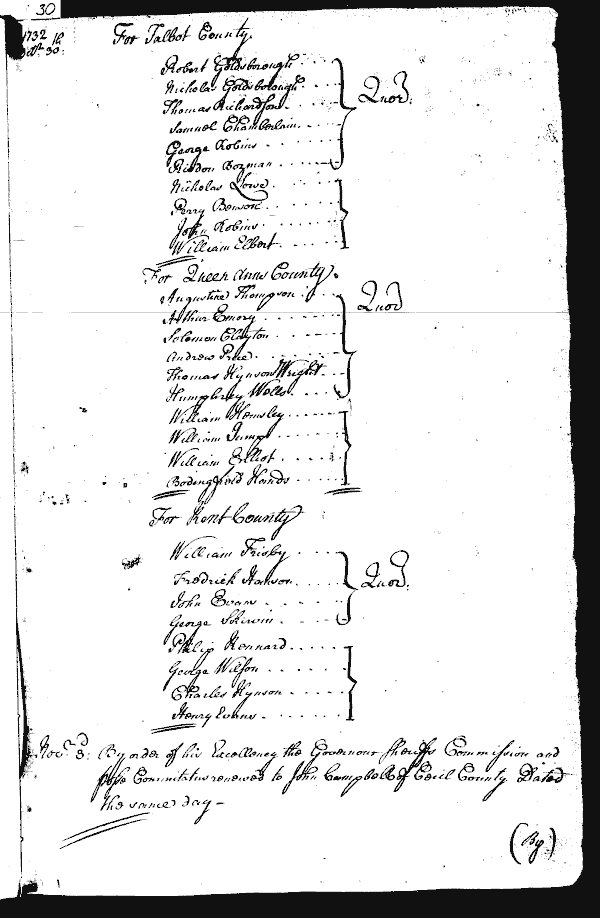 30
1732
Octr. 30th:
For Talbot County.
Robert Goldsborough
Nicholas Goldsborough
Thomas Richardson
Samuel Chamberlain
George Robins
Risdon Bozman
Quor:
Nicholas Lowe
Perry Benson
John Robins
William Elbert
For Queen Anns County.
Augustine Thompson
Arthur Emory
Solomon Clayton
Andrew Price
Thomas Hynson Wright
Humphrey Wells
Quor
William Hemsley
William Jump
William Elliot
Bodingfeild Hands
For Kent County
William Frisby
Fredrick Hanson
John Evans
George Skirvin
Quor.
Philip Kennard
George Wilson
Charles Hynson
Henry Evans
Novr. 3d: By order of his Excellency the Governour Sheriffs Commission and
posse Commitatus renewed to John Campbell of Cecil County Dated
the same day -
(By)